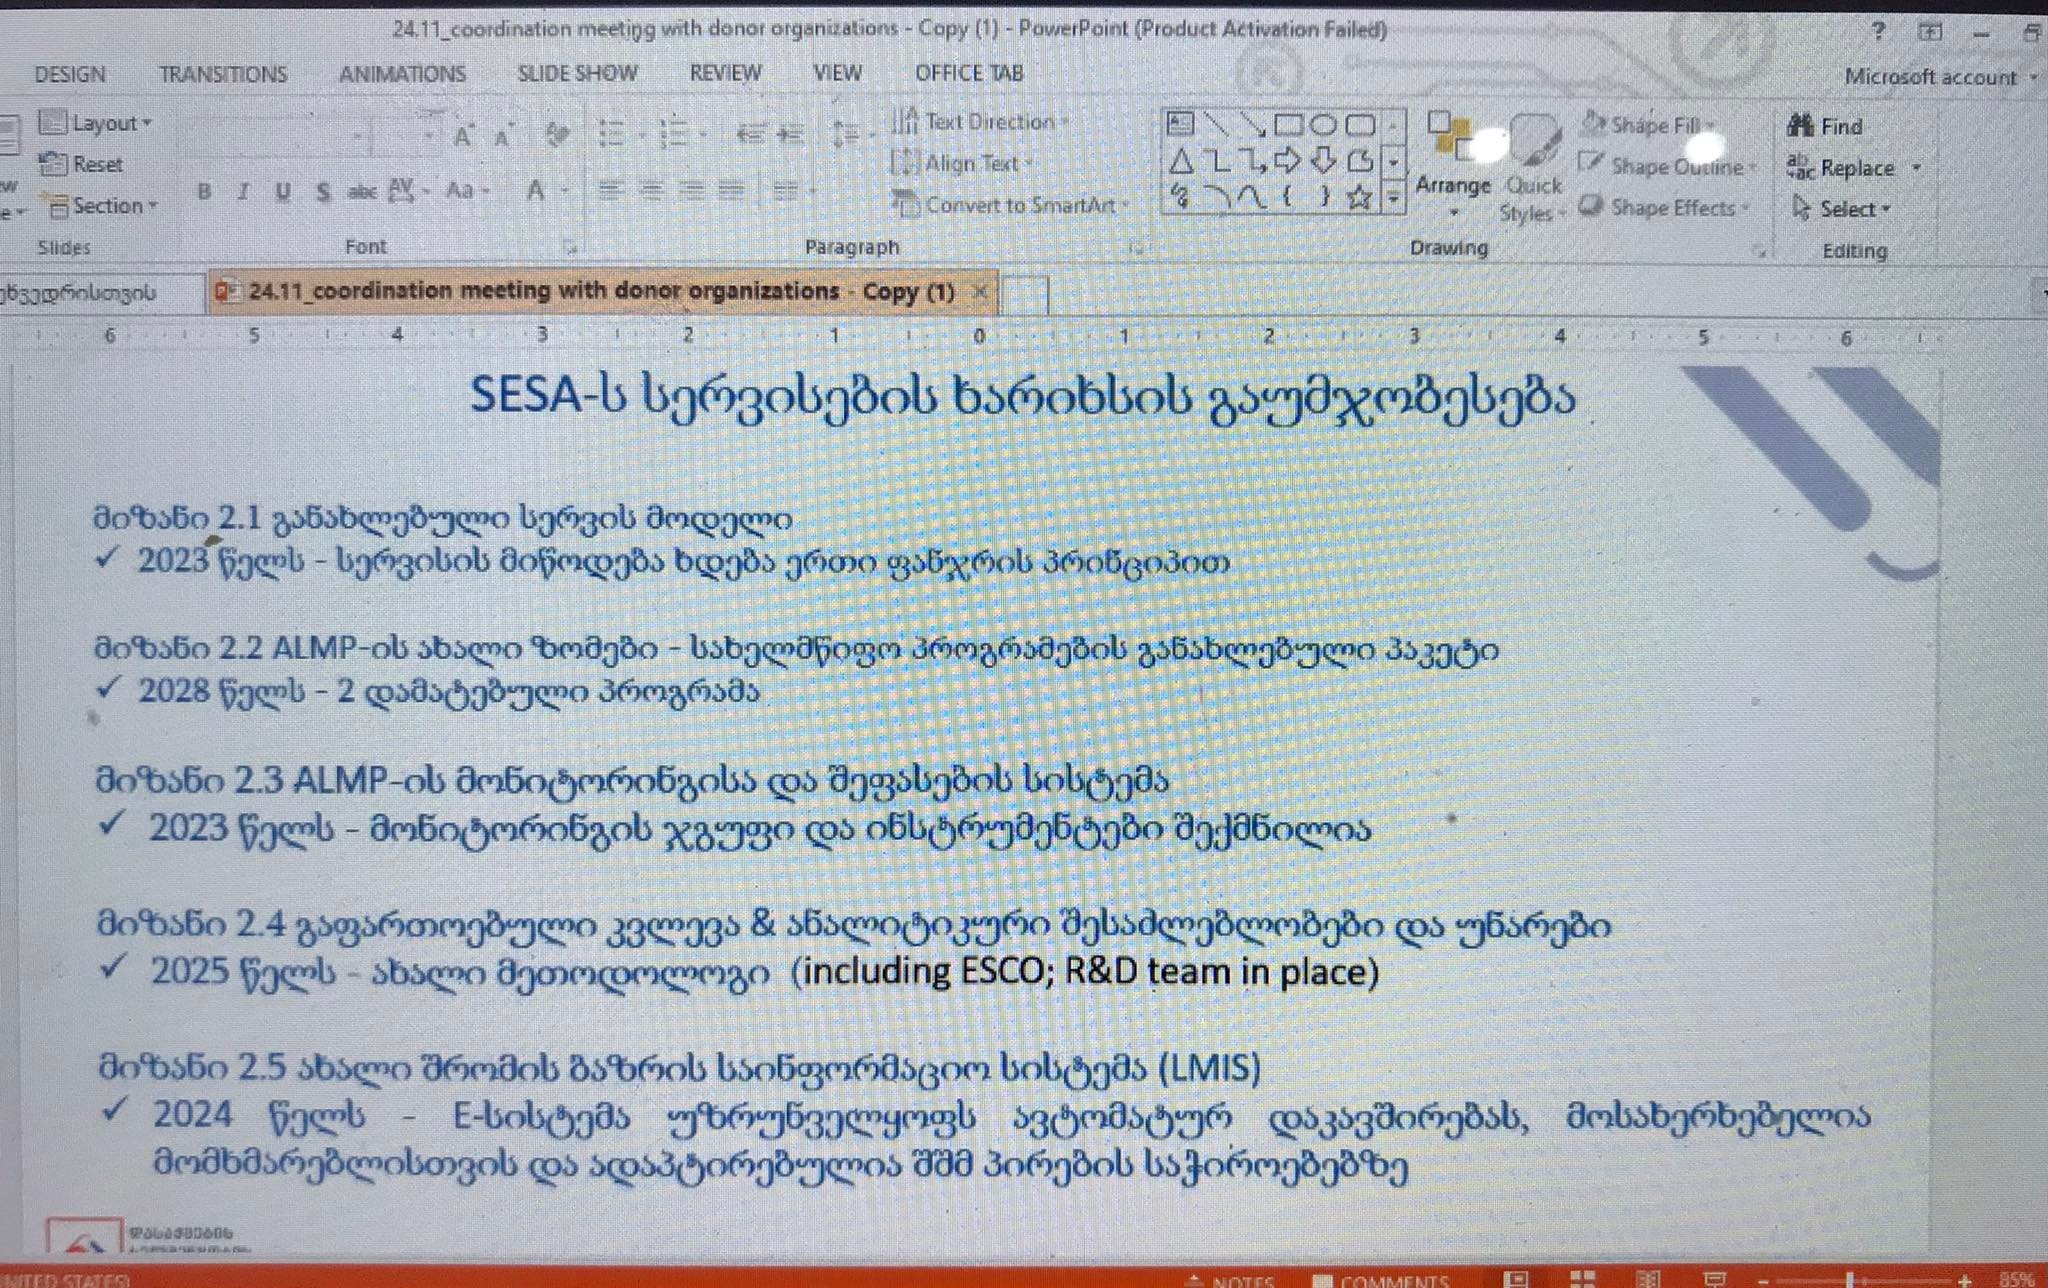 24.11_coordination meeting with donor organizations - Copy (1) - PowerPoint (Product Activation Failed)
DESIGN TRANSITIONS ANIMATIONS SLIDE SHOW REVIEW VIEW OFFICE TAB
Microsoft account
Layout
Reset
Section
Slides
B I U S abc AV Aa A
Font
Text Direction
Align Text
Convert to SmartArt
Paragraph
Arrange
Quick Styles
Shape Fill
Shape Outline
Shape Effects
Drawing
Find
Replace
Select
Editing
24.11_coordination meeting with donor organizations - Copy (1)
6 5 4 3 2 1 0 1 2 3 4 5 6
SESA-ს სერვისების ხარიხსის გაუმჯობესება
მიზანი 2.1 განახლებული სერვის მოდელი
✓ 2023 წელს - სერვისის მიწოდება ხდება ერთი ფანჯრის პრინციპით
მიზანი 2.2 ALMP-ის ახალი ზომები - სახელმწიფო პროგრამების განახლებული პაკეტი
✓ 2028 წელს - 2 დამატებული პროგრამა
მიზანი 2.3 ALMP-ის მონიტორინგისა და შეფასების სისტემა
✓ 2023 წელს - მონიტორინგის ჯგუფი და ინსტრუმენტები შექმნილია
მიზანი 2.4 გაფართოებული კვლევა & ანალიტიკური შესაძლებლობები და უნარები
✓ 2025 წელს - ახალი მეთოდოლოგი (including ESCO; R&D team in place)
მიზანი 2.5 ახალი შრომის ბაზრის საინფორმაციო სისტემა (LMIS)
✓ 2024 წელს - E-სისტემა უზრუნველყოფს ავტომატურ დაკავშირებას, მოსახერხებელია
მომხმარებლისთვის და ადაპტირებულია შშმ პირების საჭიროებებზე
დასაქმების
NOTES COMMENTS 85%